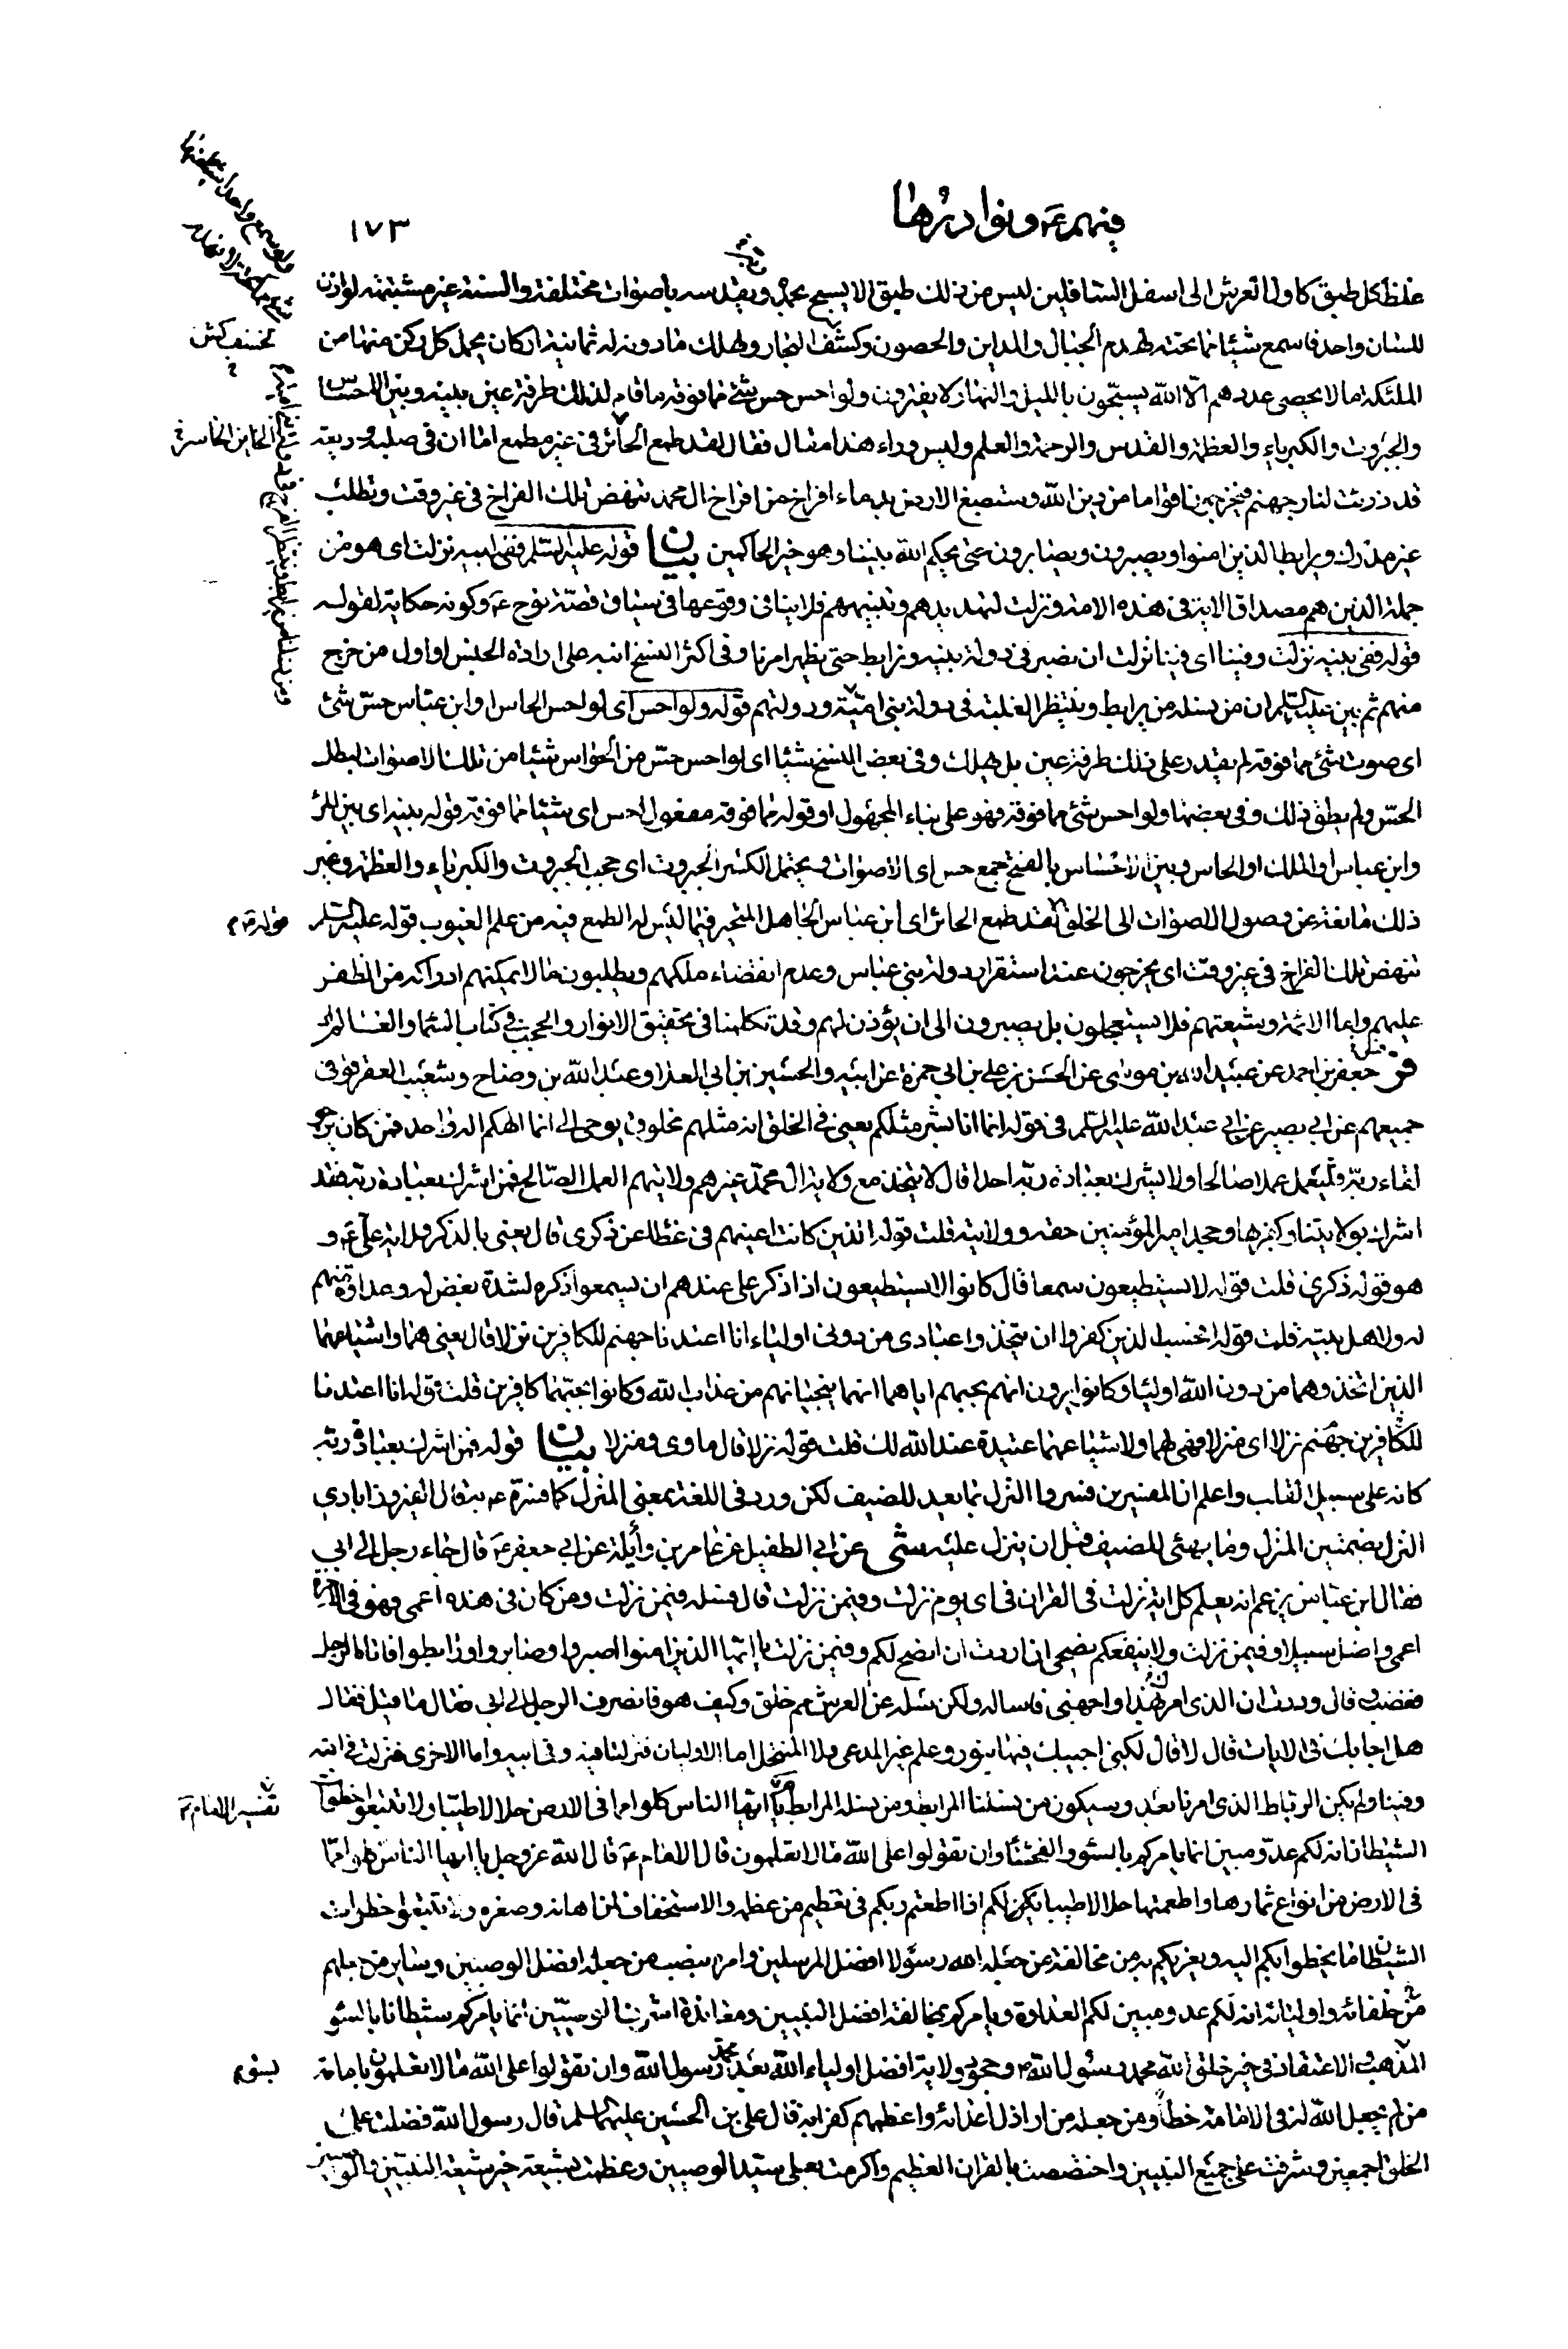 فيهم ع و نوادرها
١٧٣
غلظ كل طبق كاول العرش الى اسفل السافلين ليس من ذلك طبق الا يسبح بحمده ويقدسه باصوات مختلفة والسنة غير مشتبهة لو اذن
للسان واحد فاسمع شيئا مما تحته لهدم الجبال والمداين والحصون وكشف البحار ولهلك مادونه له ثمانية اركان يحمل كل ركن منها من
الملئكة ما لا يحصى عددهم الا الله يسبحون بالليل والنهار لا يفترون ولو احس حس شئ مما فوقه ما قام لذلك طرفة عين بينه وبين الاحساس
والجبروت والكبرياء والعظمة والقدس والرحمة والعلم وليس وراء هذا مقال فقال لقد طمع الحائر فى غير مطمع اما ان فى صلبه وديعة
قد ذرئت لنار جهنم فيخرجون اقواما من دين الله وستصبغ الارض بدماء افراخ من افراخ ال محمد تنهض تلك الفراخ فى غير وقت وتطلب
غير مدرك ويرابط الذين امنوا ويصبرون ويصابرون حتى يحكم الله بيننا وهو خير الحاكمين بيان قوله عليه السلم ففى ابيه نزلت اى هو من
جملة الذين هم مصداق الاية فى هذه الامة ونزلت لتهديدهم وتنبيههم فلا ينافى وقوعها فى سياق قصة نوح ع وكونه حكاية لقوله
قوله ففى بنيه نزلت وفينا اى فينا نزلت ان نصبر فى دولة بنيه ونرابط حتى يظهر امرنا وفى اكثر النسخ ابنه على ارادة الجنس او اول من خرج
منهم ثم بين عليه السلم ان من نسله من يرابط وينتظر الغلبة فى دولة بنى امية ودولتهم قوله ولو احس اى لو احس الحاس او ابن عباس حس شئ
اى صوت شئ مما فوقه لم يقدر على ذلك طرفة عين بل يهلك وفى بعض النسخ شيئا اى لو احس حس من الحواس شيئا من تلك الاصوات لبطل
الحس ولم يطق ذلك وفى بعضها ولو احس شئ مما فوقه فهو على بناء المجهول او قوله مما فوقه مفعول احس اى شيئا مما فوقه قوله بينه اى بين المرء
وابن عباس او الملك او الحاس وبين الاحساس بالفتح جمع حس اى الاصوات ويحتمل الكسر الجبروت اى حجب الجبروت والكبرياء والعظمة وغير
ذلك مانعة عن وصول الاصوات الى الخلق لقد طمع الحائر اى ابن عباس الجاهل المتحير فيما ليس له الطمع فيه من علم الغيوب قوله عليه السلم
تنهض تلك الفراخ فى غير وقت اى يخرجون عند استقرار دولة بنى عباس وعدم انقضاء ملكهم ويطلبون ما لا يمكنهم ادراكه من الظفر
عليهم واما الائمة وشيعتهم فلا يستعجلون بل يصبرون الى ان يؤذن لهم وقد تكلمنا فى تحقيق الانوار والحجب فى كتاب السماء والعالم
فس جعفر بن احمد عن عبيد الله بن موسى عن الحسن بن على بن ابى حمزة عن ابيه والحسين بن ابى العلا وعبد الله بن وضاح وشعيب العقرقوفى
جميعهم عن ابى بصير عن ابى عبد الله عليه السلم فى قوله انما انا بشر مثلكم يعنى فى الخلق انه مثلهم مخلوق يوحى الى انما الهكم اله واحد فمن كان يرجو
لقاء ربه فليعمل عملا صالحا ولا يشرك بعبادة ربه احدا قال لا يتخذ مع ولاية ال محمد غيرهم ولايتهم العمل الصالح فمن اشرك بعبادة ربه فقد
اشرك بولايتنا وكفر بها وجحد امير المؤمنين حقه وولايته قلت قوله الذين كانت اعينهم فى غطاء عن ذكرى قال يعنى بالذكر ولاية على ع و
هو قوله ذكرى قلت قوله لا يستطيعون سمعا قال كانوا لا يستطيعون اذا ذكر على عندهم ان يسمعوا ذكره لشدة بغض له وعداوة منهم
له ولاهل بيته قلت قوله افحسب الذين كفروا ان يتخذوا عبادى من دونى اولياء انا اعتدنا جهنم للكافرين نزلا قال يعنى هما واشياعهما
الذين اتخذوهما من دون الله اولياء وكانوا يرون انهم بحبهم اياهما انهما ينجيانهم من عذاب الله وكانوا بحبهما كافرين قلت قوله انا اعتدنا
للكافرين جهنم نزلا اى منزلا فهى لهما ولاشياعهما عتيدة عند الله لك قلت قوله نزلا قال ماوى ومنزلا بيان قوله فمن اشرك بعبادة ربه
كانه على سبيل القلب واعلم ان المفسرين فسروا النزل بما يعد للضيف لكن ورد فى اللغة بمعنى المنزل كما فسره ع به قال الفيروزابادى
النزل بضمتين المنزل وما يهيئ للضيف قبل ان ينزل عليه شى عن ابى الطفيل عن عامر بن وائلة عن ابى جعفر ع قال جاء رجل الى ابى
فقال ابن عباس يزعم انه يعلم كل اية نزلت فى القران فى اى يوم نزلت وفيمن نزلت قال فسله فيمن نزلت ومن كان فى هذه اعمى فهو فى الاخرة
اعمى واضل سبيلا وفيمن نزلت ولا ينفعكم نصحى ان اردت ان انصح لكم وفيمن نزلت يا ايها الذين امنوا اصبروا وصابروا ورابطوا فاتاه الرجل
فغضب قال وددت ان الذى امرك بهذا واجهنى فاساله ولكن سله عن العرش مم خلق وكيف هو فانصرف الرجل الى ابى فقال ما قيل فقال
هل اجابك فى الايات قال لا قال لكنى اجيبك فيها بنور وعلم غير المدعى ولا المنتحل اما الاوليان فنزلتا فيه وفى ابيه واما الاخرى فنزلت فى ابيه
وفينا ولم يكن الرباط الذى امرنا بعد وسيكون من نسلنا المرابط ومن نسله المرابط م يا ايها الناس كلوا مما فى الارض حلالا طيبا ولا تتبعوا خطوات
الشيطان انه لكم عدو مبين انما يامركم بالسوء والفحشاء وان تقولوا على الله ما لا تعلمون قال الامام ع قال الله عز وجل يا ايها الناس كلوا مما
فى الارض من انواع ثمارها واطعمتها حلالا طيبا يكن لكم اذا اطعتم ربكم فى تعظيم من عظمه والاستخفاف لمن اهانه وصغره ولا تتبعوا خطوات
الشيطان ما يخطوا بكم اليه ويغريكم به من مخالفة من جعله الله رسولا افضل المرسلين وامره بنصب من جعله افضل الوصيين وساير من جعلهم
من خلفائه واوليائه انه لكم عدو مبين لكم العداوة ويامركم بمخالفة افضل النبيين ومعاندة اشرف الوصيين انما يامركم شيطانا بالسوء
المذهب والاعتقاد فى خير خلق الله محمد رسول الله ص وجحود ولاية افضل اولياء الله بعد محمد رسول الله وان تقولوا على الله ما لا تعلمون بامامة
من لم يجعل الله له فى الامامة حظا ومن جعله من اراذل اعدائه واعظمهم كفرا به قال على بن الحسين عليهما السلم قال رسول الله فضلت على
الخلق اجمعين وشرفت على جميع النبيين واختصصت بالقران العظيم واكرمت بعلى سيد الوصيين وعظمت بشيعته خير شيعة النبيين والوصيين
تخسف كش
الحاين الخاسر
قوله ع م
تفسير الامام ع
بسوء م